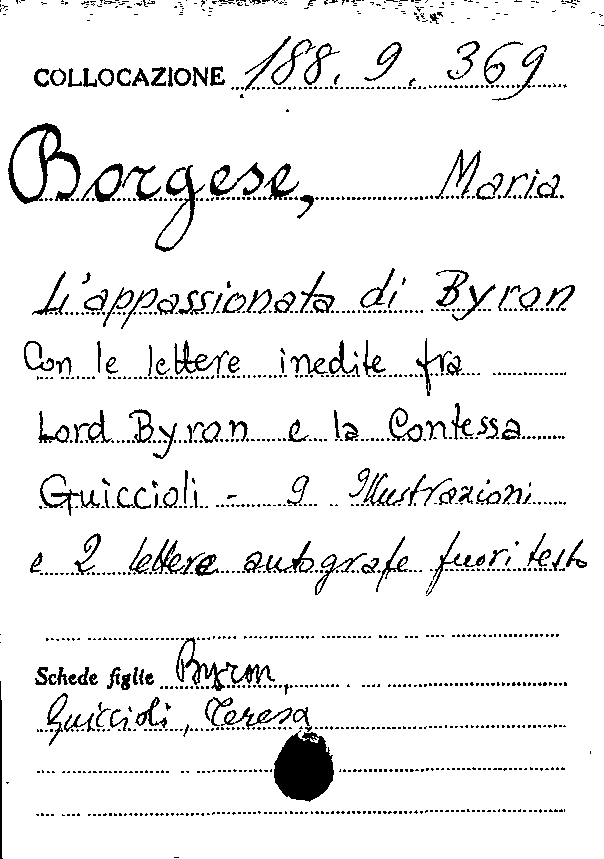 COLLOCAZIONE 188.9.369
Borgese, Maria
L'appassionata di Byron
Con le lettere inedite fra
Lord Byron e la Contessa
Guiccioli - 9 Illustrazioni
e 2 lettere autografe fuori testo
Schede figlie Byron,
Guiccioli, Teresa